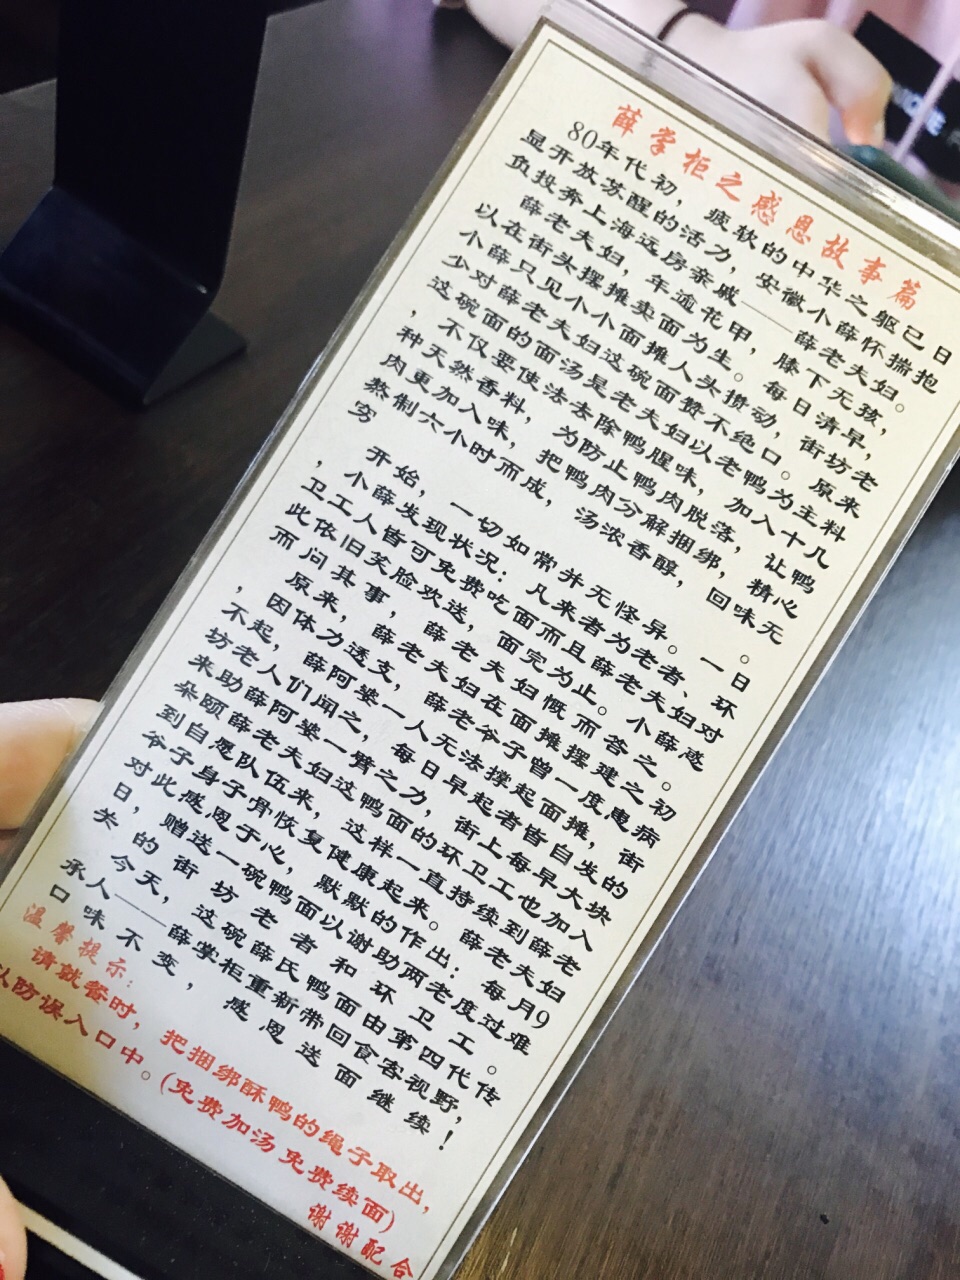 薛掌柜之感恩故事篇
80年代初，疲软的中华之躯已日
显开放苏醒的活力，安徽小薛怀揣抱
负投奔上海远房亲戚——薛老夫妇。
薛老夫妇，年逾花甲，膝下无孩，
以在街头摆摊卖面为生。每日清早，
小薛只见小小面摊人头攒动，街坊老
少对薛老夫妇这碗面赞不绝口。原来
这碗面的面汤是老夫妇以老鸭为主料
，不仅要使法去除鸭腥味，加入十几
种天然香料，为防止鸭肉脱落，让鸭
肉更加入味，把鸭肉分解捆绑，精心
熬制六小时而成，汤浓香醇，回味无
穷。
开始，一切如常并无怪异。一日
，小薛发现状况：凡来者为老者、环
卫工人皆可免费吃面而且薛老夫妇对
此依旧笑脸欢送，面完为止。小薛感
而问其事，薛老夫妇慨而答之。
原来，薛老夫妇在面摊摆建之初
，因体力透支，薛老爷子曾一度患病
不起，薛阿婆一人无法撑起面摊，街
坊老人们闻之，每日早起者皆自发的
来助薛阿婆一臂之力，街上每早大块
朵颐薛老夫妇这鸭面的环卫工也加入
到自愿队伍来，这样一直持续到薛老
爷子身子骨恢复健康起来。薛老夫妇
对此感恩于心，默默的作出：每月9
日，赠送一碗鸭面以谢助两老度过难
关的街坊老者和环卫工。
今天，这碗薛氏鸭面由第四代传
承人——薛掌柜重新带回食客视野，
口味不变，感恩送面继续！
温馨提示：
请就餐时，把捆绑酥鸭的绳子取出，
以防误入口中。(免费加汤免费续面)
谢谢配合